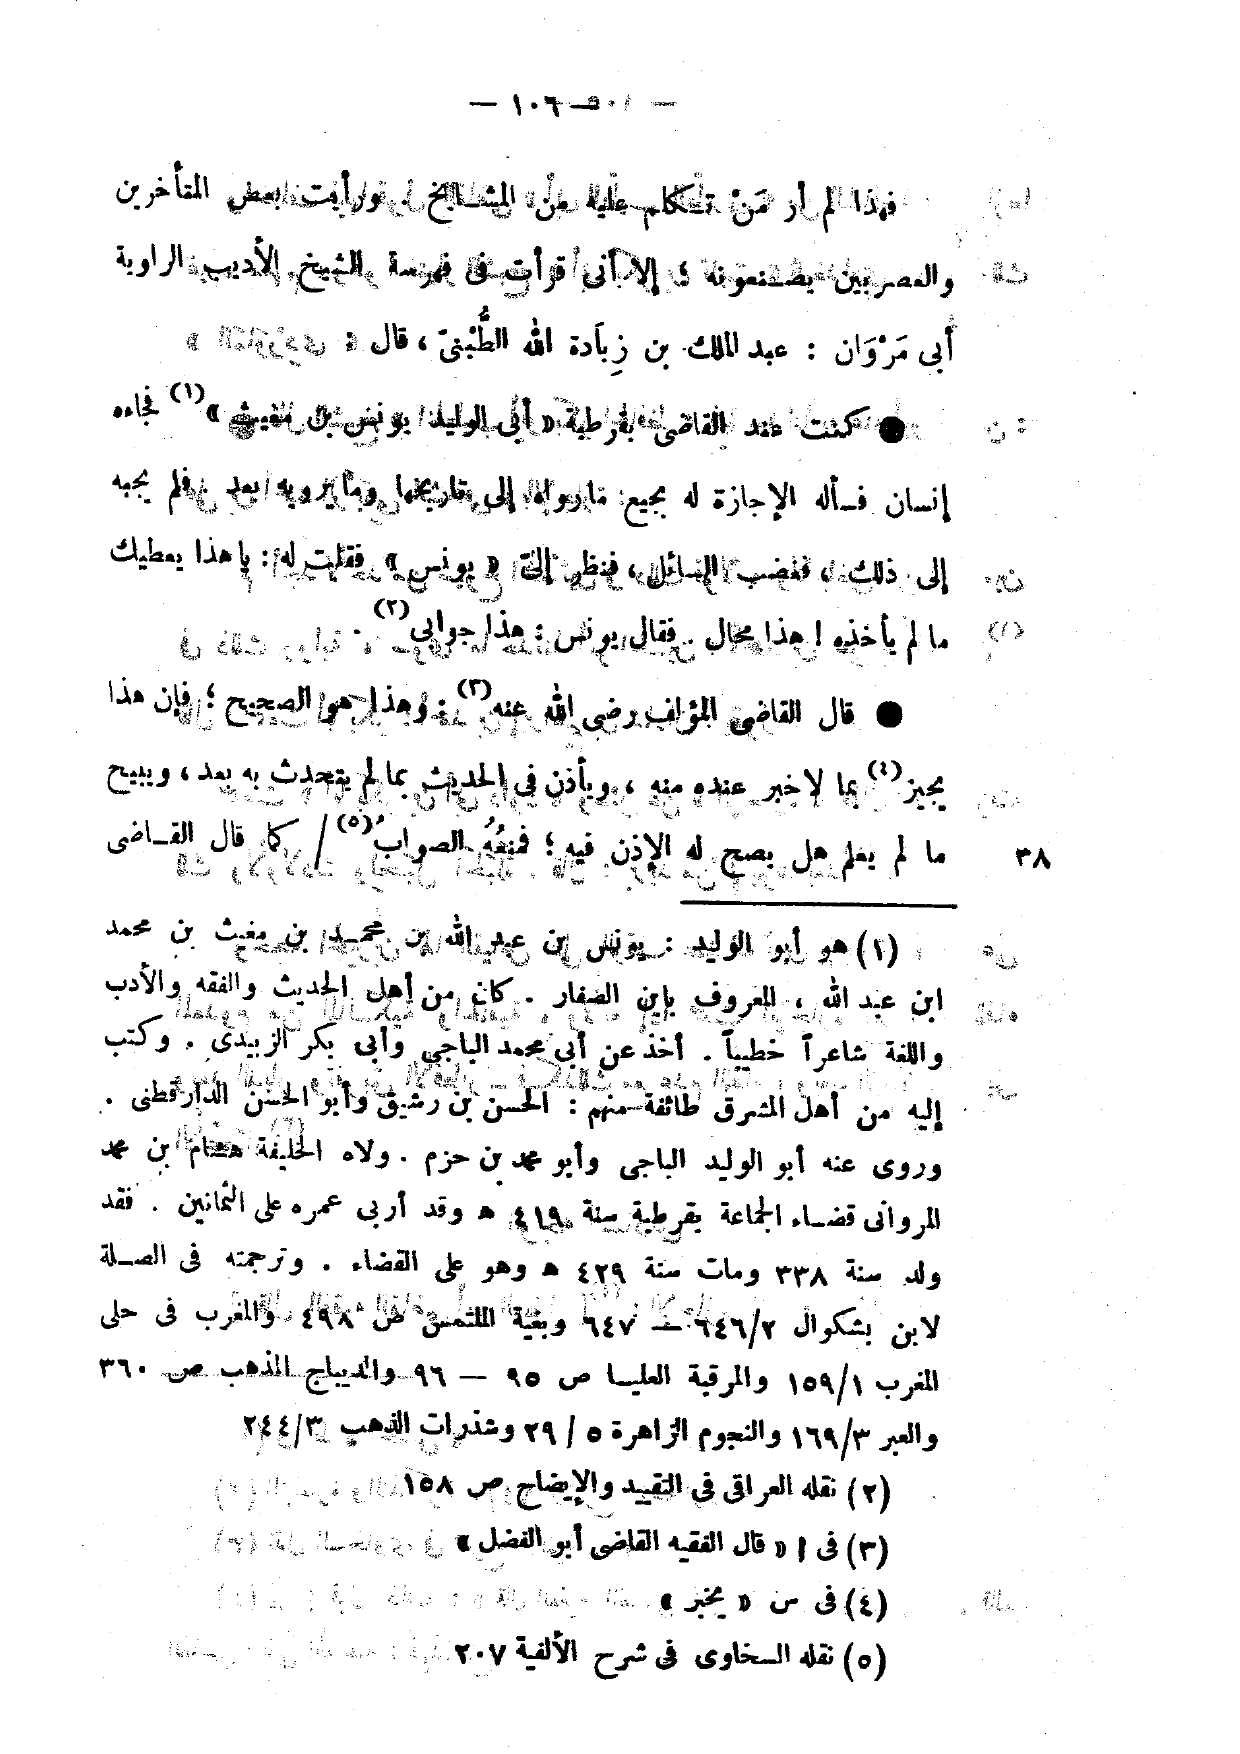 — ١٠٦ —
فهذا لم أر مَنْ تكلم عليه من المشايخ ، ورأيت بعض المتأخرين
والعصريين يصنعونه ؛ إلا أنى قرأت فى فهرسة الشيخ الأديب الراوية
أبى مَرْوَان : عبد الملك بن زيادة الله الطُّبْنىّ ، قال :
● كنت عند القاضى بقرطبة « أبى الوليد يونس بن مغيث »(١) فجاءه
إنسان فسأله الإجازة له بجميع ما رواه إلى تاريخها وما يرويه بعد ، فلم يجبه
إلى ذلك ، فغضب السائل ، فنظر إلىّ « يونس » فقلت له : يا هذا يعطيك
ما لم يأخذه ! هذا محال . فقال يونس : هذا جوابى(٢) .
● قال القاضى المؤلف رضى الله عنه(٣) : وهذا هو الصحيح ؛ فإن هذا
يجيز(٤) بما لا خبر عنده منه ، ويأذن فى الحديث بما لم يتحدث به بعد ، ويبيح
ما لم يعلم هل يصح له الإذن فيه ؛ فمنعُهُ الصوابُ(٥) / كما قال القاضى
٣٨
(١) هو أبو الوليد : يونس بن عبد الله بن محمد بن مغيث بن محمد
ابن عبد الله ، المعروف بابن الصفار . كان من أهل الحديث والفقه والأدب
واللغة شاعراً خطيباً . أخذ عن أبى محمد الباجى وأبى بكر الزبيدى . وكتب
إليه من أهل المشرق طائفة منهم : الحسن بن رشيق وأبو الحسن الدارقطنى .
وروى عنه أبو الوليد الباجى وأبو محمد بن حزم . ولاه الخليفة هشام بن محمد
المروانى قضاء الجماعة بقرطبة سنة ٤١٩ هـ وقد أربى عمره على الثمانين . فقد
ولد سنة ٣٣٨ ومات سنة ٤٢٩ هـ وهو على القضاء . وترجمته فى الصلة
لابن بشكوال ٦٤٦/٢ — ٦٤٧ وبغية الملتمس ص ٤٩٨ والمغرب فى حلى
المغرب ١٥٩/١ والمرقبة العليا ص ٩٥ — ٩٦ والديباج المذهب ص ٣٦٠
والعبر ١٦٩/٣ والنجوم الزاهرة ٥ / ٢٩ وشذرات الذهب ٢٤٤/٣
(٢) نقله العراقى فى التقييد والإيضاح ص ١٥٨
(٣) فى ا « قال الفقيه القاضى أبو الفضل »
(٤) فى س « يخبر »
(٥) نقله السخاوى فى شرح الألفية ٢٠٧